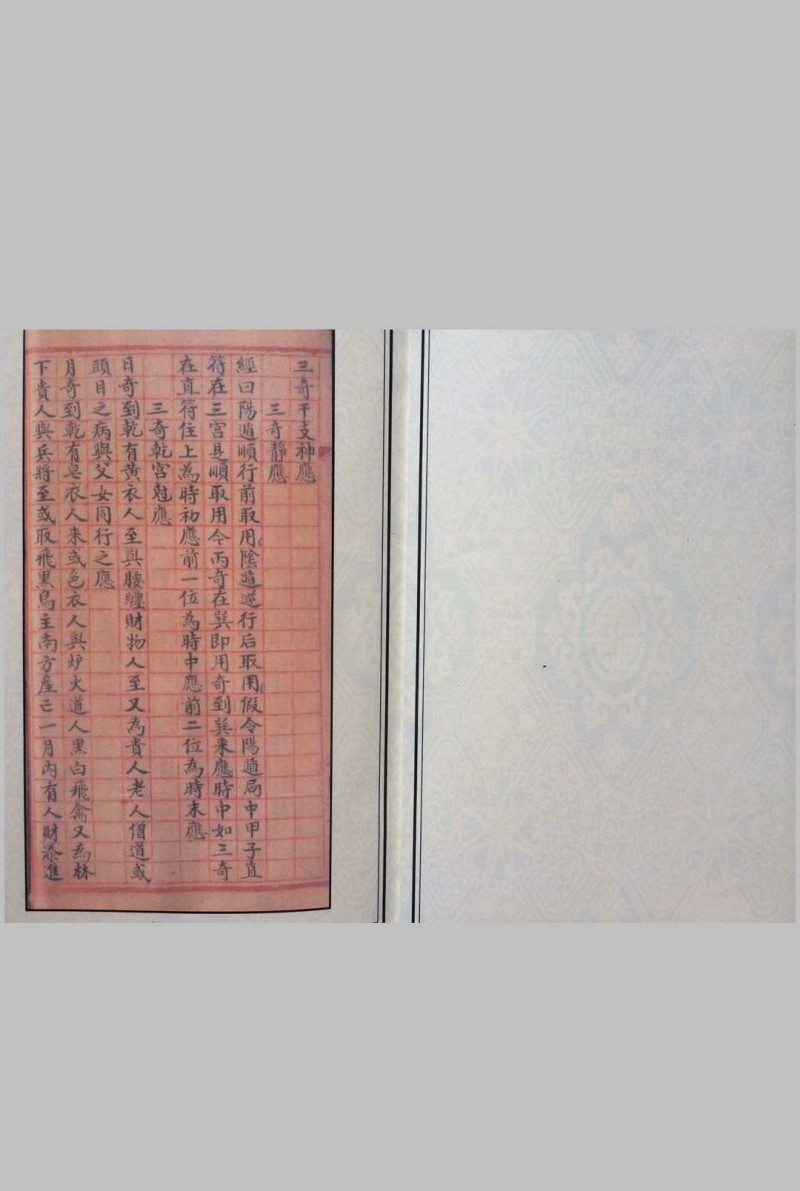 三奇干支神應
三奇靜應
經曰陽遁順行前取用陰遁逆行后取用假令陽遁局中甲子直
符在三宮是順取用令丙奇在巽即用奇到巽来應時中如三奇
在直符住上為時初應前一位為時中應前二位為時末應
三奇乾宮尅應
日奇到乾有黃衣人至與腰纏財物人至又為貴人老人僧道或
頭目之病與父女同行之應
月奇到乾有皂衣人来或色衣人與炉火道人黑白飛禽又為林
下貴人與兵將至或取飛黑鳥主南方產亡一月內有人財添進